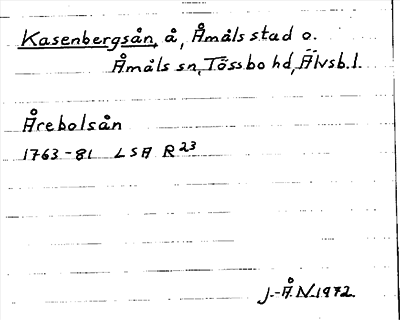 Kasenbergsån, å, Åmåls stad o.
Åmåls sn, Tössbo hd, Älvsb.l.
Årebolsån
1763-81 LSA R23
J.-Å.N.1972.